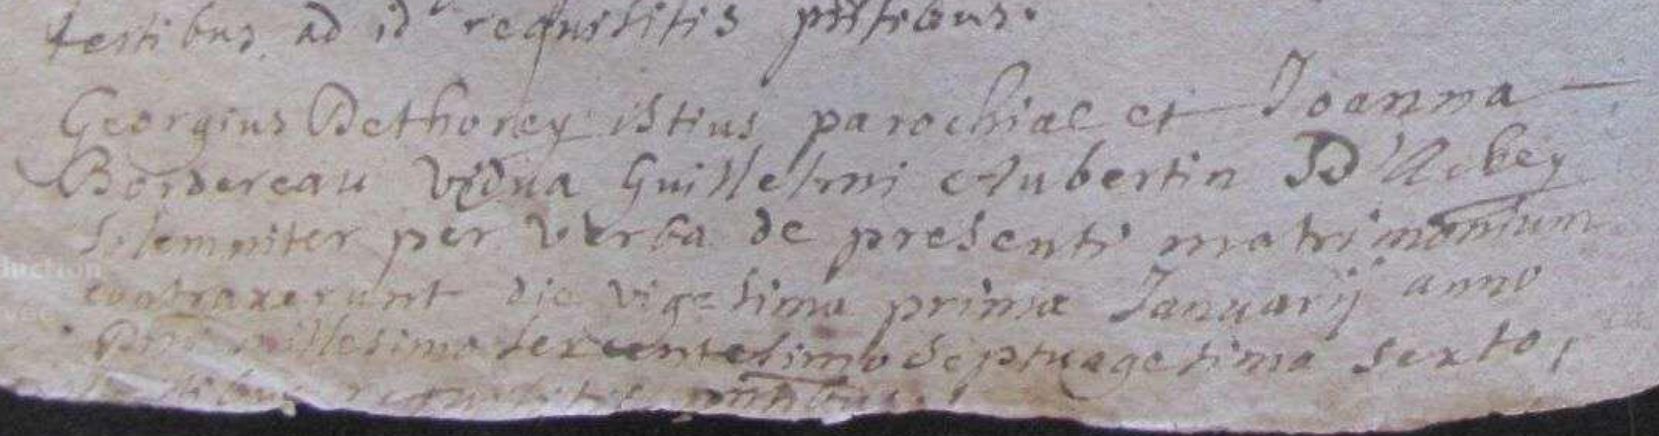 testibus ad id requisitis pntibus.
Georgius Dethorey istius parochiae et Joanna
Bordereau vidua Guillelmi Aubertin D'Ackey
Solempniter per verba de presenti matrimonium
contraxerunt die vigesima prima Januarij anno
Dni millesimo sexcentesimo septuagesimo sexto,
requisitis pntibus.